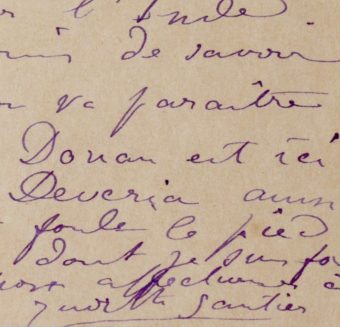 l'Inde
de savoir
va paraître
Donan est ici
Deveria aussi
foulé le pied
dont je suis
affectueuses
Judith Gautier